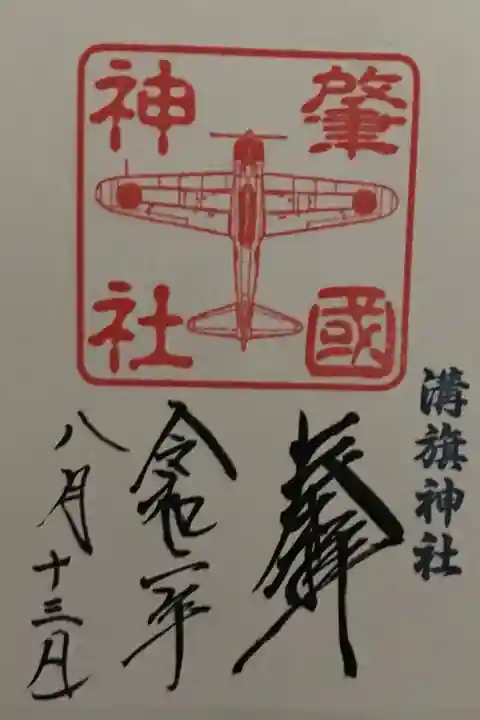 肇國
神社
溝旗神社
奉拝
令和二年
八月十三日